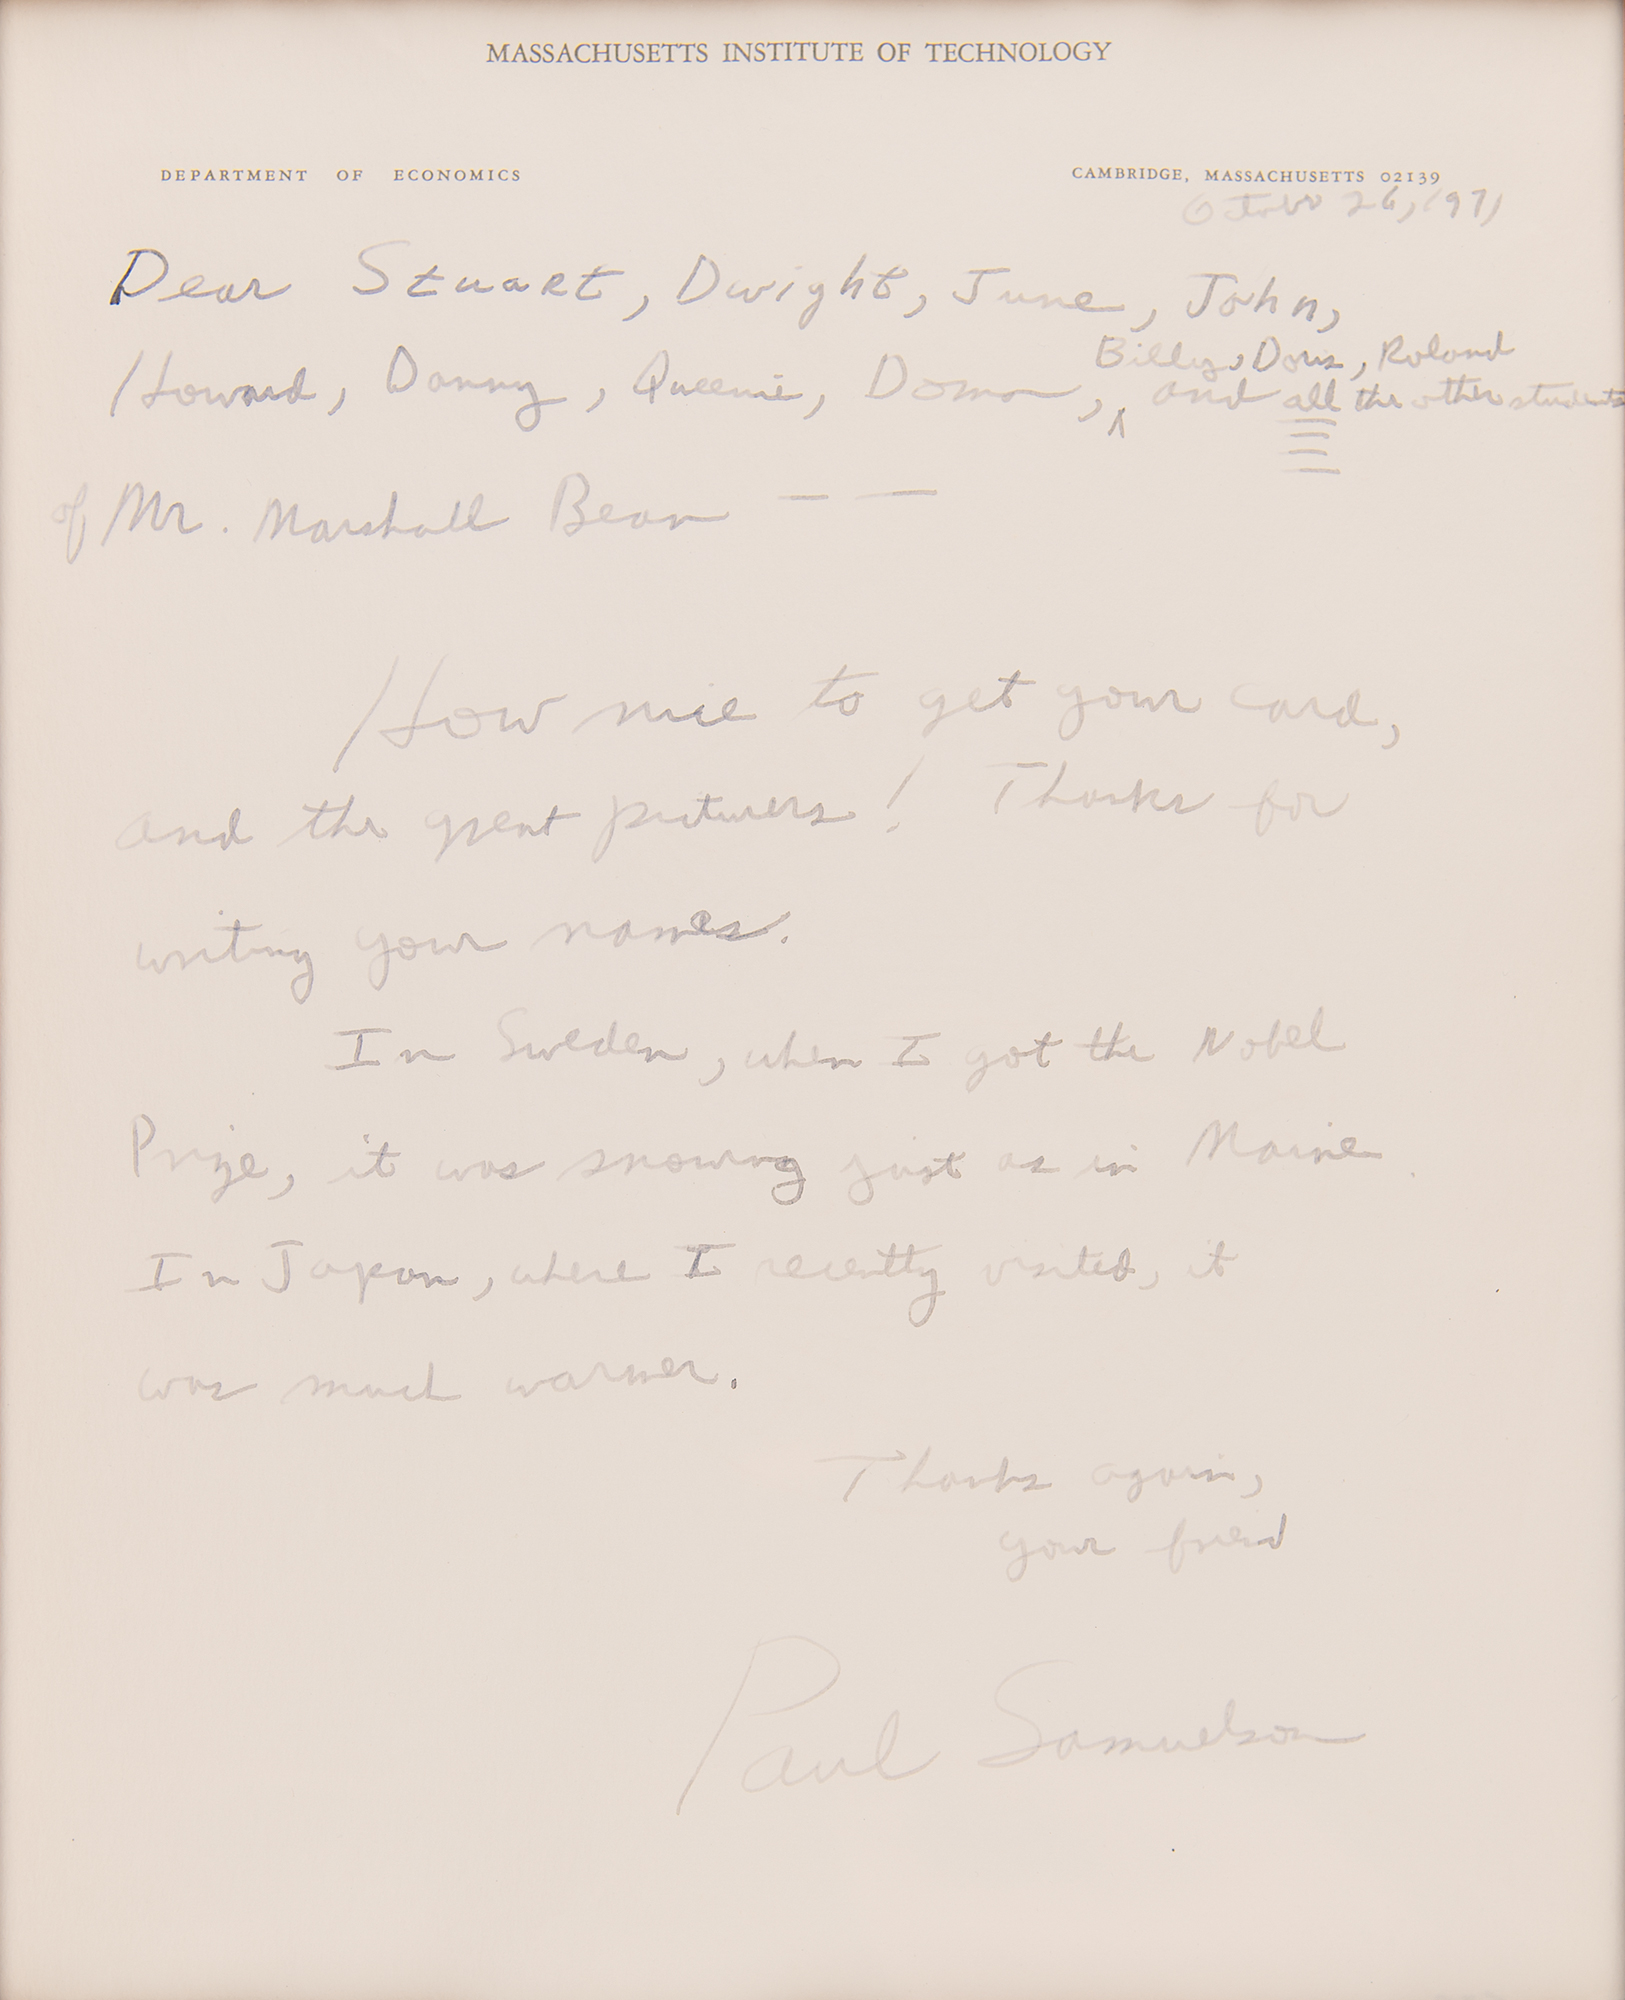 MASSACHUSETTS INSTITUTE OF TECHNOLOGY
DEPARTMENT OF ECONOMICS
CAMBRIDGE, MASSACHUSETTS 02139
October 26, 1971
Dear Stuart, Dwight, June, John,
Billy, Doris, Roland
Howard, Danny, Queenie, , ∧ and all the other students
of Mr. Marshall Bean — —
How nice to get your card,
and the great pictures! Thanks for
writing your names.
In Sweden, when I got the Nobel
Prize, it was snowing just as in Maine.
In Japan, where I recently visited, it
was much warmer.
Thanks again,
your friend
Paul Samuelson